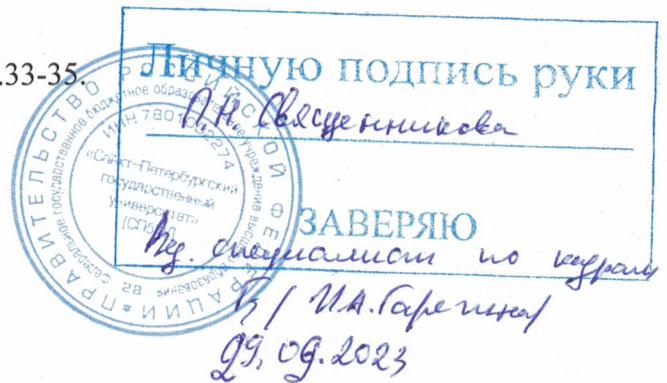 .33-35.
Личную подпись руки
П.Н. Священникова
ЗАВЕРЯЮ
Вед. специалист по кадрам
И.А.
09.2023
ПРАВИТЕЛЬСТВО РОССИЙСКОЙ ФЕДЕРАЦИИ
Федеральное государственное бюджетное образовательное учреждение высшего образования
ИНН 7801002274
«Санкт-Петербургский
государственный
университет»
(СПбГУ)
28